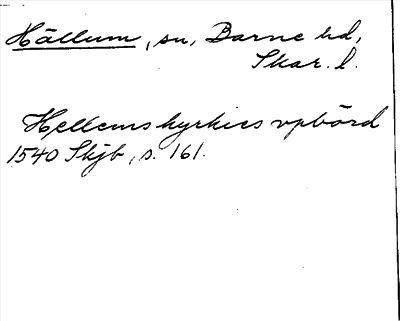 Hällum, sn, Barne hd,
Skar. l.
Hellems kyrkies vpbörd
1540 Skjb, s. 161.